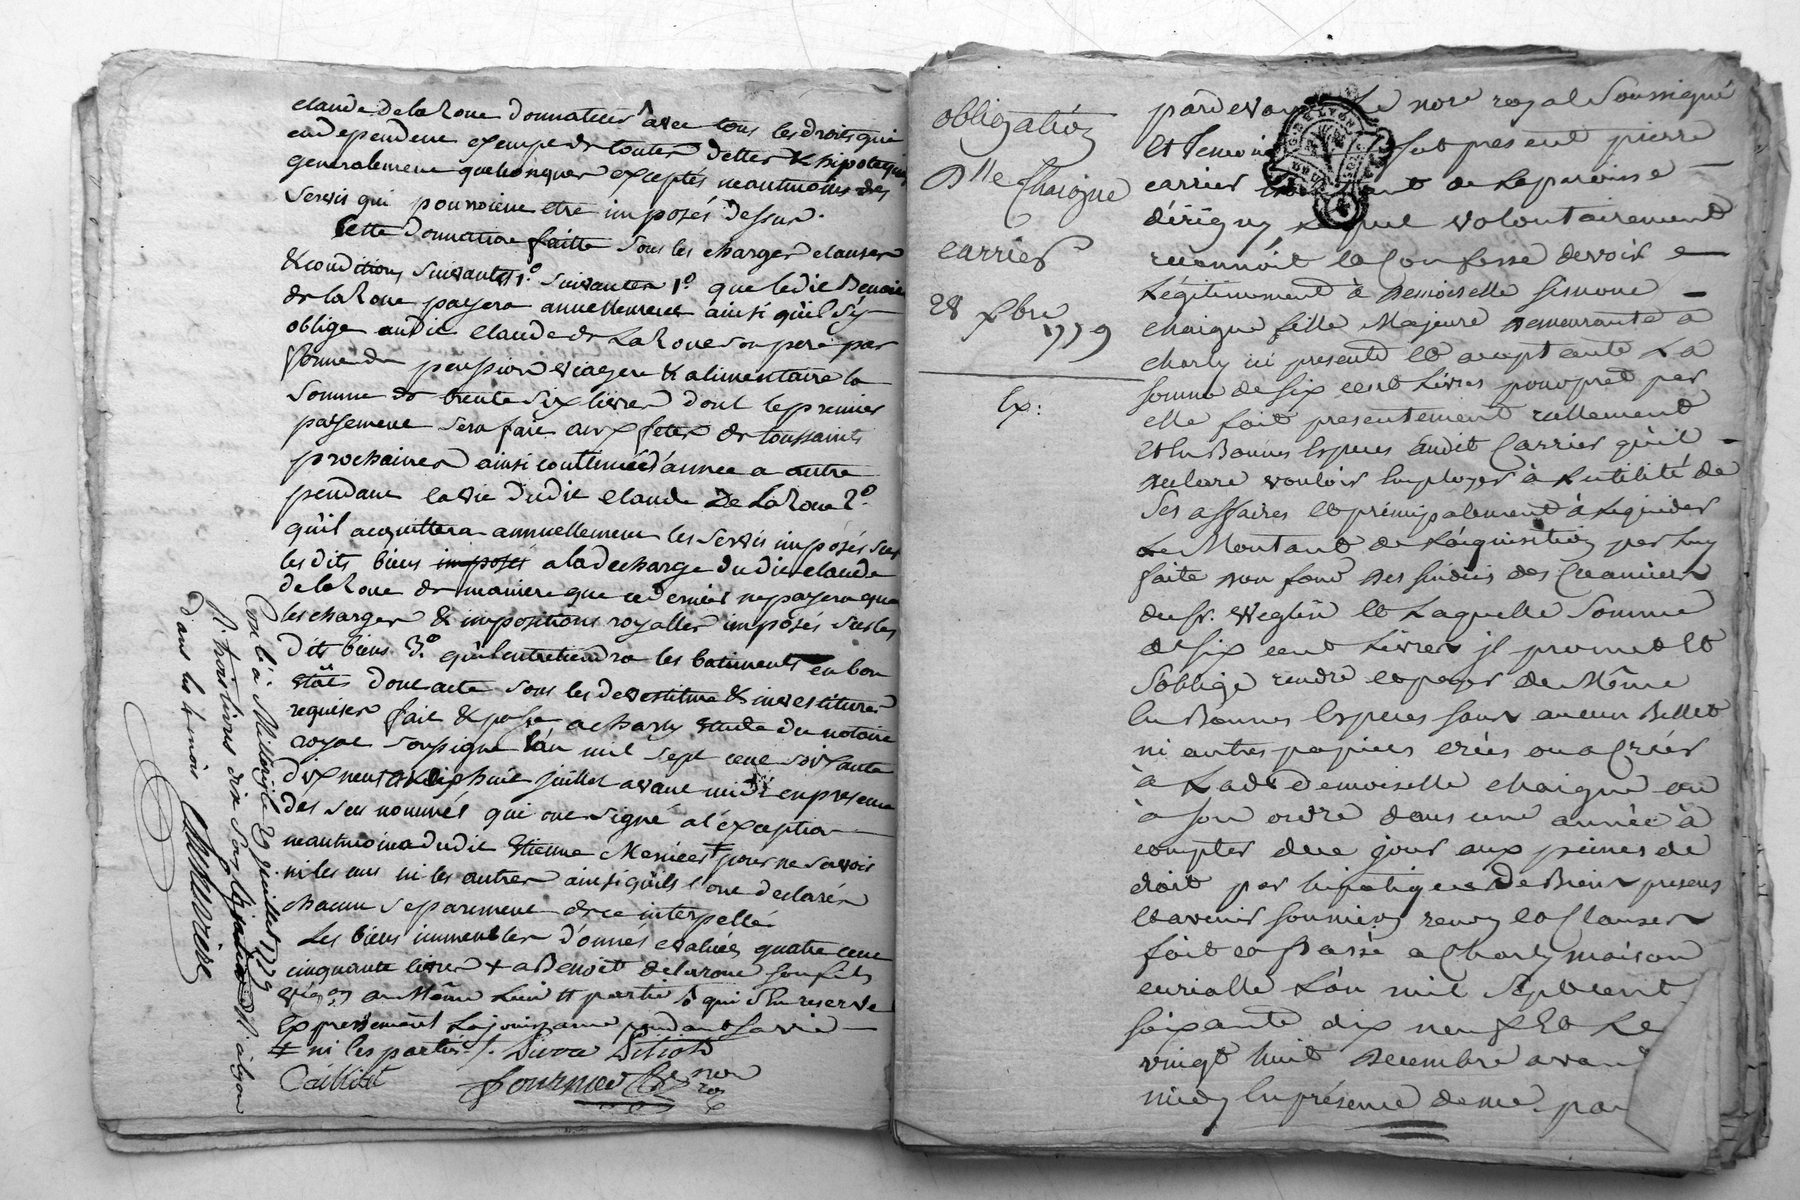 claude de la Roue donnateur avec tous les droits qui
en dependent exempt de toutes dettes & hipoteques
generalement quelconques exceptés neantmoins des
servis qui pourroient etre imposés dessus.
Cette donnation faitte sous les charges clauses
& conditions suivantes 1.° suivantes 1.° que ledit Benoit
de la Roue payera annuellement ainsi qu'il s'y
oblige audit claude de La Roue son pere par
forme de pension viagere & alimentaire la
somme de trente six livres dont le premier
payement sera fait aux fetes de toussaints
prochaines ainsi continuée d'année a autre
pendant la vie dudit claude De La Roue 2.°
qu'il acquittera annuellement les servis imposés sur
les dits biens imposés a la decharge dudit claude
de la Roue de maniere que ce dernier ne payera que
les charges & impositions royalles imposés sur les
dits biens 3.° qu'il entretiendra les batiments en bon
etât dont acte sous les devestiture & investitures
requises fait & passé a charly etude du notaire
royal soussigné l'an mil sept cent soixante
dix neuf dix huit juillet avant midi en presence
des sus nommés qui ont signé a l'exception
neantmoins dudit Etienne pour ne savoir
ni les uns ni les autres ainsi qu'ils l'ont declarés
chacun separement de ce interpellé.
Les biens immeubles donnés evalués quatre cent
cinquante livres + a Benoit delaroue son fils
vigon au Même Lieu # partie & qui s'en reserve
Expressement La jouissance pendant sa vie
# ni les parties /.
Caillot fournier
Con.lé à Millery le 29 juillet 1779
R. trois livres dix sols à Lyon
dans les 4 mois
obligation
Dlle Chaigne
carrier
28 xbre
1779
Ex:
pardevant Le nore royal soussigné
et Temoins fut present pierre
carrier de La paroisse
d'irigny Lequel volontairement
reconnoit et Confesse devoir
Légitimement à Demoiselle simone
chaigne fille Majeure Demeurante à
charly ici presente et acceptante La
somme de six cent Livres pour pret par
elle fait presentement reellement
et en Bonnes Especes audit Carrier qu'il
declare vouloir Employer à L'utilité de
Ses affaires et principalement à Liquider
Le Montant de L'aquisition par Luy
faite des sindics des Creanciers
du sr. Weglin et Laquelle somme
de six cent Livres il promet et
s'oblige rendre et payer de Même
En Bonnes Especes sans aucun Billet
ni autres papiers crées ou a Créer
à Ladte Demoiselle chaigne ou
à son ordre dans une année à
compter de ce jour aux peines de
droit par hipoteques De Biens presens
et avenir soumission renon et Clauses
fait et Passé a Charly maison
curialle L'an mil Sept cent
soixante dix neuf Et Le
vingt huit Decembre avant
midy En présence de me. pa